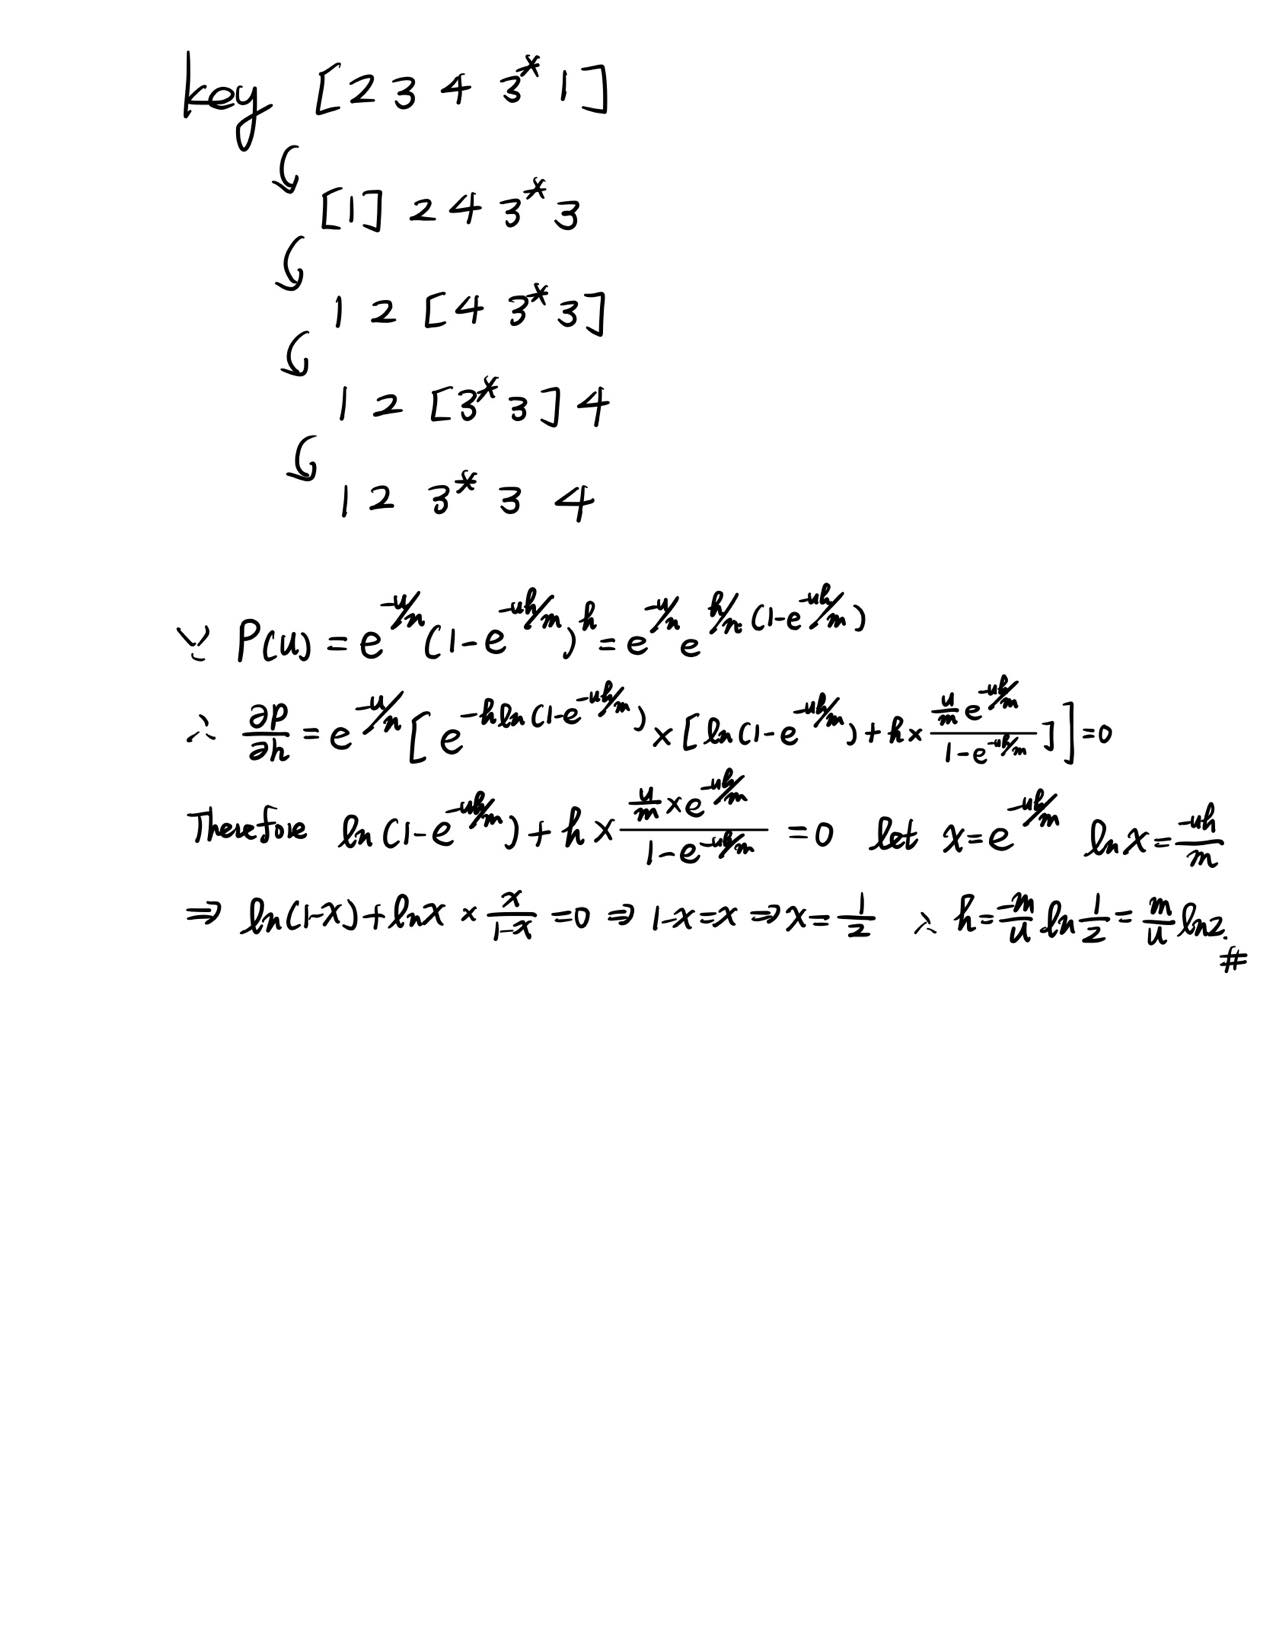 key [2 3 4 3* 1]
[1] 2 4 3* 3
1 2 [4 3* 3]
1 2 [3* 3] 4
1 2 3* 3 4
∵ P(u) = e^{-u/n} (1 - e^{-uh/m})^h = e^{-u/n} e^{h/n (1-e^{-uh/m})}
∴ ∂p/∂h = e^{-u/n} [ e^{-h ln (1-e^{-uh/m})} × [ ln (1 - e^{-uh/m}) + h × (u/m e^{-uh/m})/(1 - e^{-uh/m}) ] ] = 0
Therefore ln (1 - e^{-uh/m}) + h × (u/m × e^{-uh/m})/(1 - e^{-uh/m}) = 0 let x = e^{-uh/m} ln x = -uh/m
⇒ ln (1-x) + ln x × x/(1-x) = 0 ⇒ 1-x = x ⇒ x = 1/2 ∴ h = -m/u ln 1/2 = m/u ln 2. #